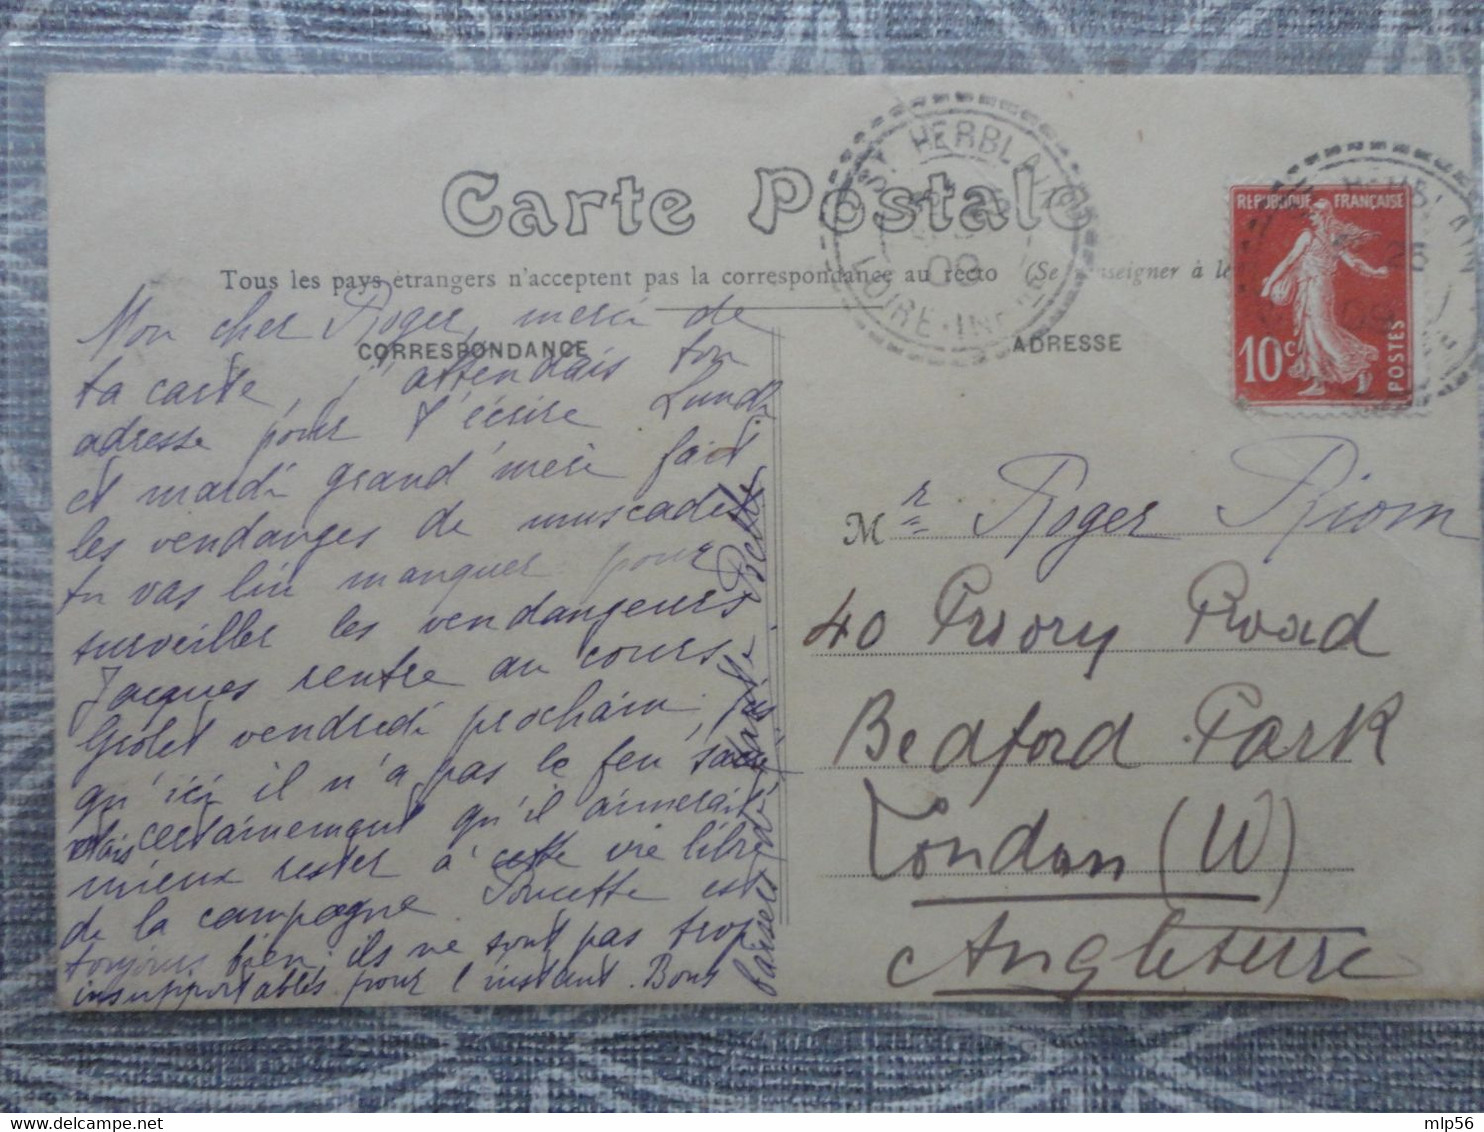 Carte Postale
Tous les pays étrangers n'acceptent pas la correspondance au recto (Se renseigner à
CORRESPONDANCE
ADRESSE
ST HERBLAIN
09
LOIRE-INF
REPUBLIQUE FRANÇAISE
10c
POSTES
Mon cher Roger, merci de
ta carte, j'attendais ton
adresse pour t'écrire Lundi
et mardi grand'mère fait
les vendanges de muscadet
tu vas lui manquer pour
surveiller les vendangeurs
Jacques rentre au cours
Grolet vendredi prochain,
qu'ici il n'a pas le feu
Mais certainement qu'il aimerait
mieux rester à cette vie libre
de la campagne. Poucette est
toujours bien ils ne sont pas trop
insupportables pour l'instant. Bons
baisers de
Mr Roger Riom
40 Priory Road
Bedford Park
London (W)
Angleterre
mlp56